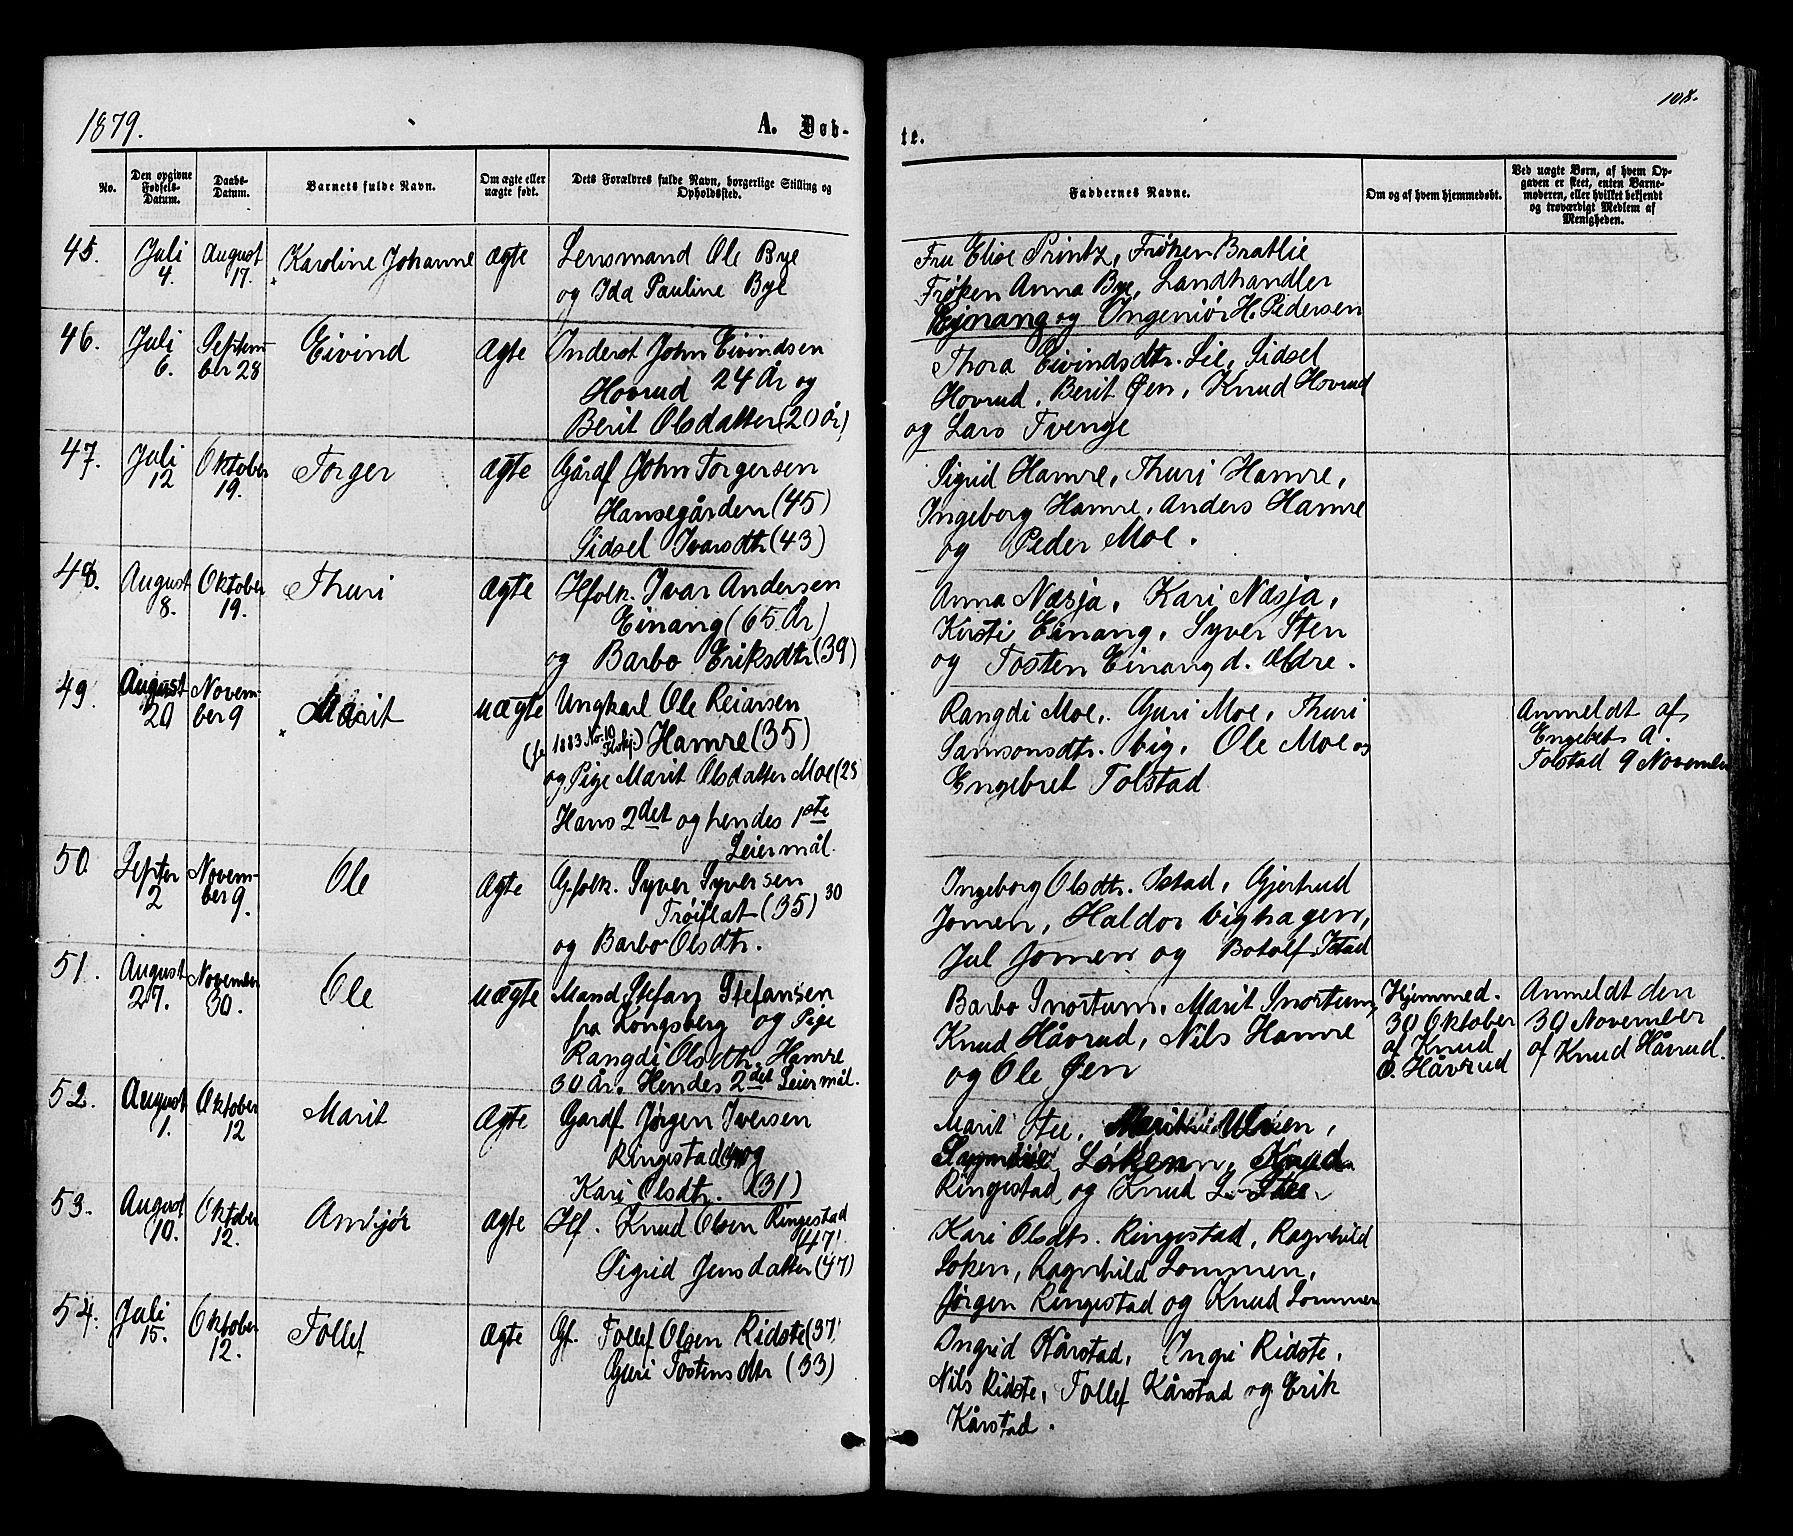 1879.
A. Døb-
te.
108.
No.
Den opgivne Fødsels-Datum.
Daabs-Datum.
Barnets fulde Navn.
Om ægte eller uægte født.
Dets Forældres fulde Navn, borgerlige Stilling og Opholdssted.
Faddernes Navne.
Om og af hvem hjemmedøbt.
Ved uægte Børn, af hvem Opgaven er skeet, enten Barnemoderen, eller hvilket bekjendt og troværdigt Medlem af Menigheden.
45. Juli 4. August 17. Karoline Johanne ægte Lensmand Ole Bye
og Ida Pauline Bye
Fru Elise Printz, Frøken Bratlie
Frøken Anna Bye, Landhandler
Ejnang og Ingeniør H. Pedersen
46. Juli 6. Septem-
ber 28 Eivind ægte Inderst John Eivindsen
Hovrud 24 År og
Berit Olsdatter (20 år)
Thora Eivindsdtr. Lie, Sidsel
Hovrud, Berit Øen, Knud Hovrud
og Lars Tvenge
47. Juli 12 Oktober 19. Torger ægte Gårdf John Torgersen
Hansegården (45)
Sidsel Ivarsdtr (43)
Sigrid Hamre, Thuri Hamre,
Ingeborg Hamre, Anders Hamre
og Peder Moe.
48. August 8. Oktober 19. Thuri ægte Hfolk. Ivar Andersen
Einang (65 År)
og Barbo Eriksdtr (39)
Anna Næsja, Kari Næsja,
Kirsti Einang, Syver Sten
og Tosten Einang d. ældre.
49. August 20 Novem-
ber 9 Marit uægte Ungkarl Ole Reiarsen
1883 No. 10
Hamre (35)
og Pige Marit Olsdatter Moe (25
Hans 2det og hendes 1ste
Leiermål.
Rangdi Moe, Guri Moe, Thuri
Samsonsdtr. big. Ole Moe og
Engebret Tolstad
Anmeldt af
Engebret A.
Tolstad 9 November
50. Septer 2 Novem-
ber 9. Ole ægte G.folk. Syver Syversen
Trøiflat (35) 30
og Barbo Olsdtr.
Ingeborg Olsdtr. Istad, Gjertrud
Jomen, Haldor bighagen,
Jul Jomen og Botolf Istad
51. August 27. November 30. Ole uægte Mand Stefan Stefansen
fra Kongsberg og Pige
Rangdi Olsdtr. Hamre
30 År. Hendes 2det Leiermål.
Barbo Snortum, Marit Snortum,
Knud Håvrud, Nils Hamre
og Ole Øen
Hjemmed.
30 Oktober
af Knud
O. Håvrud
Anmeldt den
30 November
af Knud Håvrud.
52. August 1. Oktober 12 Marit ægte Gardf Jørgen Iversen
Ringestad og
Kari Olsdtr. (31)
Marit Stee, Ulvien,
Løken, Knud
Ringestad og Knud Stee
53. August 10. Oktober 12. Ambjør ægte Hf. Knud Olsen Ringestad
(47)
Sigrid Jensdatter (47)
Kari Olsdtr. Ringestad, Ragnhild
Løken, Ragnhild Lommen,
Jørgen Ringestad og Knud Lommen
54. Juli 15. Oktober 12. Tollef ægte Gf. Tollef Olsen Ridste (37)
Guri Tostensdtr (33)
Ingrid Kårstad, Ingri Ridste,
Nils Ridste, Tollef Kårstad og Erik
Kårstad.